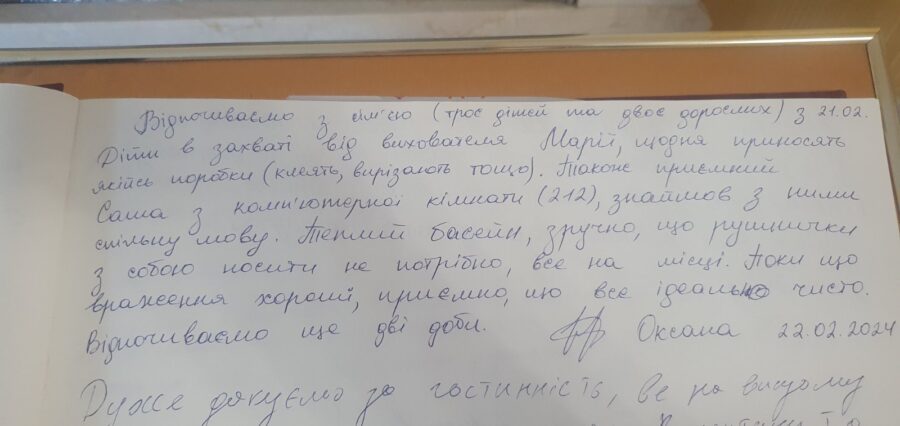 Відпочиваємо з сім'єю (троє дітей та двоє дорослих) з 21.02.
Діти в захваті від вихователя Марії, щодня приносять
якійсь поробки (клеять, вирізають тощо). Також приємний
Саша з комп'ютерної кімнати (212), знаймов з ними
спільну мову. Теплий басейн, зручно, що рушнички
з собою носити не потрібно, все на місці. Поки що
враження хороші, приємно, що все ідеально чисто.
Відпочиваємо ще дві доби. Оксана 22.02.2024
Дуже дякуємо за гостинність, все на вищому